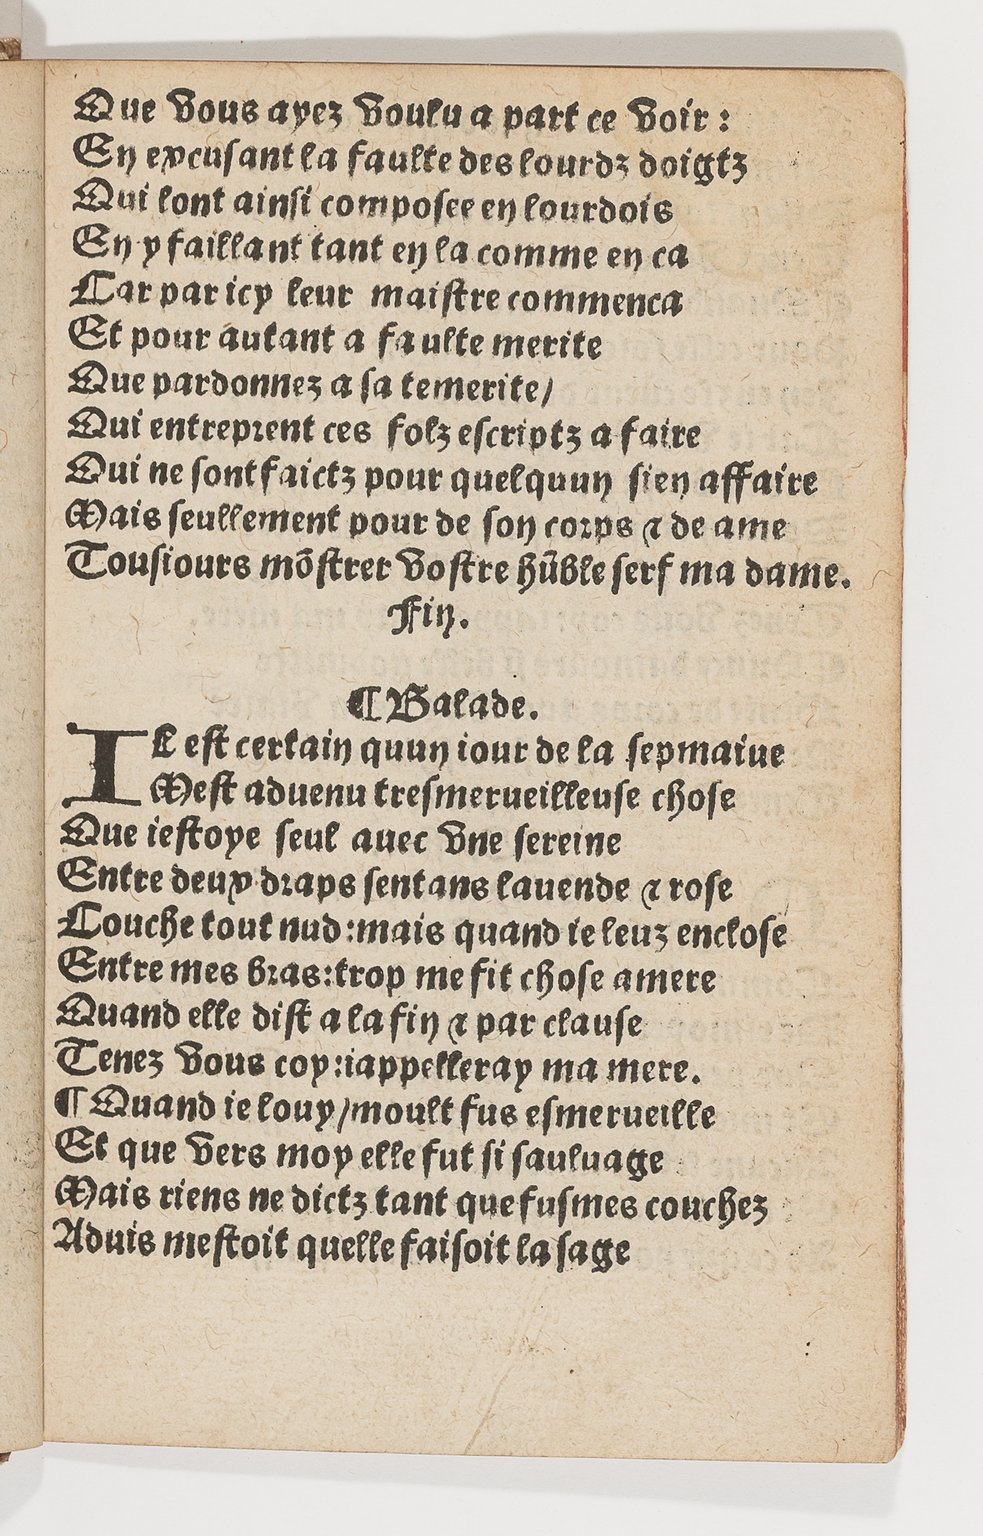 Que vous ayez voulu a part ce voir :
En excusant la faulte des lourdz doigtz
Qui lont ainsi composee en lourdois
En y faillant tant en la comme en ca
Car par icy leur maistre commenca
Et pour autant a faulte merite
Que pardonnez a sa temerite/
Qui entreprent ces folz escriptz a faire
Qui ne sont faictz pour quelquun sien affaire
Mais seullement pour de son corps ⁊ de ame
Tousiours mõstrer vostre hũble serf ma dame.
Fin.
¶ Balade.
IL est certain quun iour de la sepmaiue
Mest aduenu tresmerueilleuse chose
Que iestoye seul auec vne sereine
Entre deux draps sentans lauende ⁊ rose
Couche tout nud :mais quand ie leuz enclose
Entre mes bras:trop me fit chose amere
Quand elle dist a la fin ⁊ par clause
Tenez vous coy:iappelleray ma mere.
¶ Quand ie louy/moult fus esmerueille
Et que vers moy elle fut si sauluage
Mais riens ne dictz tant que fusmes couchez
Aduis mestoit quelle faisoit la sage